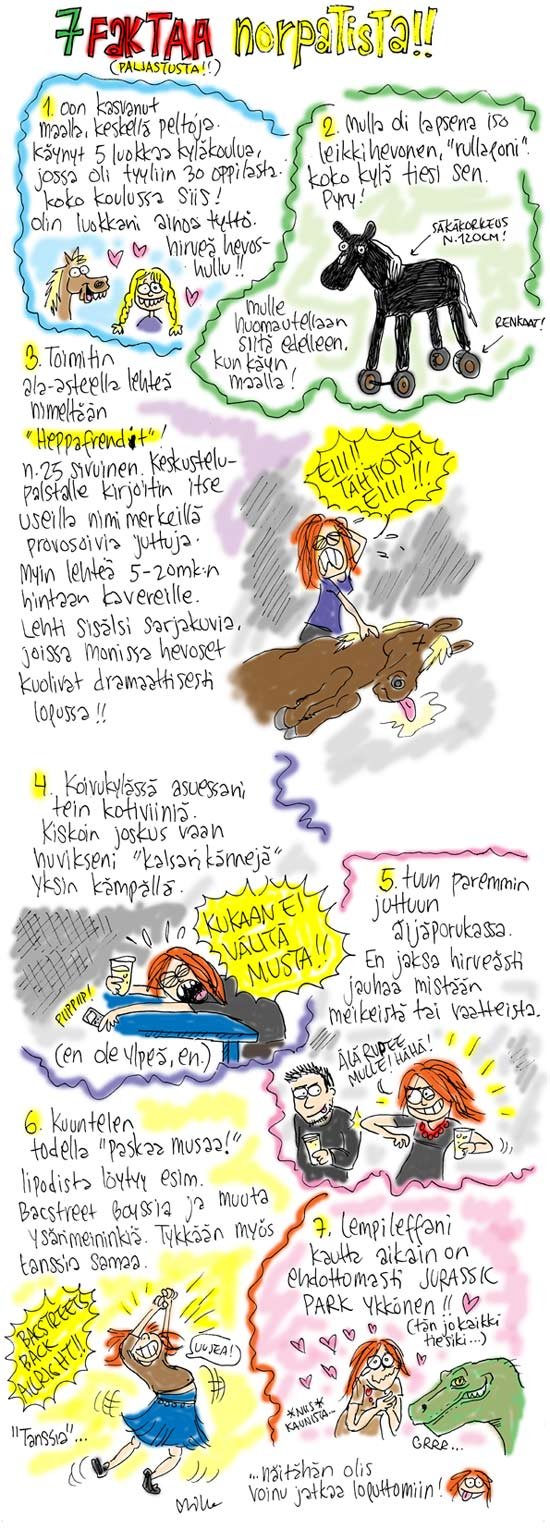 7 FAKTAA norpatista!!
(PALJASTUSTA!!)
1. oon kasvanut
maalla, keskellä peltoja.
Käynyt 5 luokkaa kyläkoulua,
jossa oli tyyliin 30 oppilasta.
koko koulussa siis!
olin luokkani ainoa tyttö.
hirveä hevos-
hullu!!
2. Mulla oli lapsena iso
leikkihevonen, "rullaponi".
koko kylä tiesi sen.
Pyry!
SÄKÄKORKEUS
N. 120CM!
RENKAAT!
Mulle
huomautellaan
siitä edelleen,
kun käyn
maalla!
3. Toimitin
ala-asteella lehteä
nimeltään
"Heppafrendit"!
n. 25 sivuinen. Keskustelu-
palstalle kirjoitin itse
useilla nimimerkeillä
provosoivia juttuja.
Myin lehteä 5-20mk:n
hintaan kavereille.
Lehti sisälsi sarjakuvia,
joissa monissa hevoset
kuolivat dramaattisesti
lopussa!!
EIII!!
TÄHTIOTSA
EIIII!!!
4. Koivukylässä asuessani,
tein kotiviiniä.
Kiskoin joskus vaan
huvikseni "kalsarikännejä"
yksin kämpällä.
KUKAAN EI
VÄLITÄ
MUSTA!!
PIIPPIIP!
(en ole ylpeä, en.)
5. tuun paremmin
juttuun
äijäporukassa.
En jaksa hirveästi
jauhaa mistään
meikeistä tai vaatteista.
ÄLÄ RUPEE
MULLE! HÄHÄ!
6. Kuuntelen
todella "paskaa musaa!"
Iipodista löytyy esim.
Bacstreet Boyssia ja muuta
Ysärimeininkiä. Tykkään myös
tanssia samaa.
BACKSTREETS
BACK
ALLRIGHT!!
UUJEA!
"Tanssia"...
7. Lempileffani
kautta aikain on
ehdottomasti JURASSIC
PARK YKKÖNEN!!
(tän jo kaikki
tiesiki...)
*NIIS*
KAUNISTA...
GRRR...
...näitähän olis
voinu jatkaa loputtomiin!